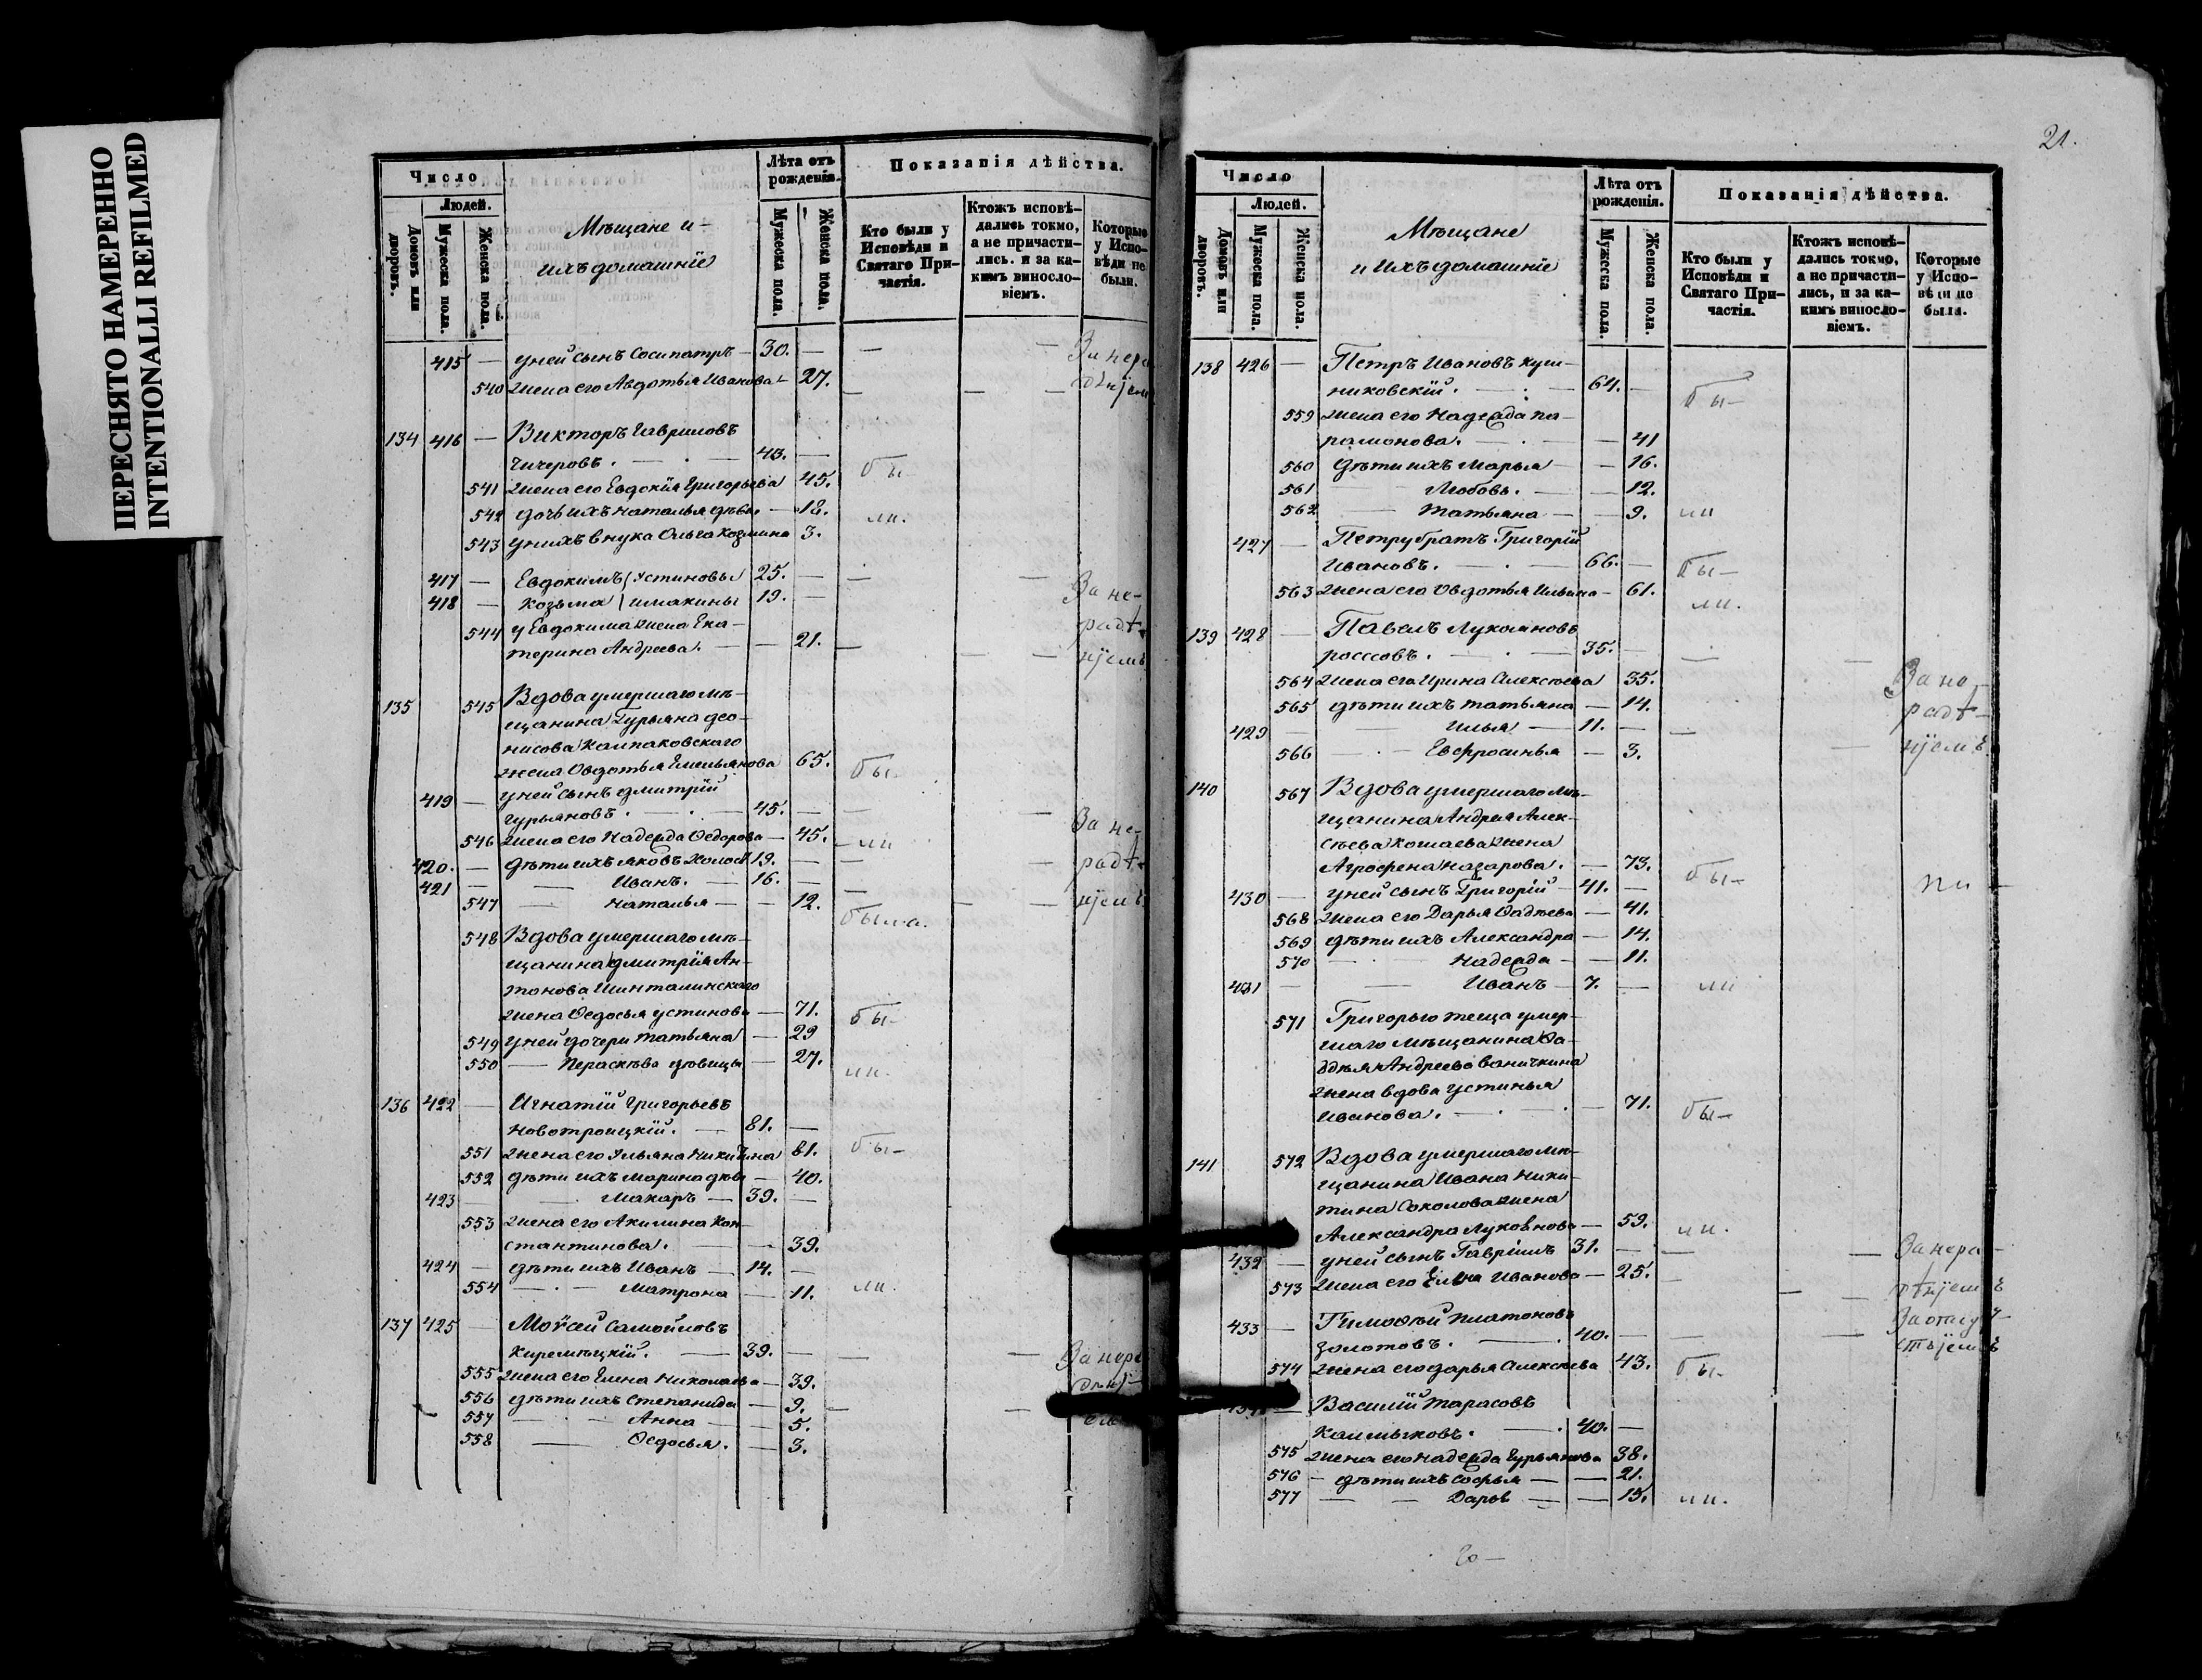 ПЕРЕСНЯТО НАМЕРЕННО
INTENTIONALLI REFILMED
Число
Людей.
Домовъ или дворовъ.
Мужеска пола.
Женска пола.
Мѣщане и
ихъ домашніе
Лѣта отъ рожденія.
Мужеска пола.
Женска пола.
Показанія дѣйства.
Кто были у Исповѣди и Святаго Причастія.
Ктожъ исповѣдались токмо, а не причастились. и за какимъ винословіемъ.
Которые у Исповѣди не были.
415 — у ней сынъ Сосипатръ — 30. — — — За нера
540 жена его Авдотья Иванова — 27. — — —
134 416 — Викторъ Гавриловъ
Чичеровъ. — 43. — бы
541 жена его Евдокія Григорьева 45.
542 дочь ихъ Наталья дѣвк. — 18. ли.
543 у нихъ внука Ольга Козмина 3.
417 — Евдокимъ Устиновы 25. — — — За не-
418 — Козьма 19. — радѣ-
544 у Евдокима жена Ека-
терина Андреева. — — 21. — — — ніемъ
135 545 Вдова умершаго мѣ-
щанина Гурьяна Део-
нисова Колпаковскаго
жена Овдотья Емельянова 65. бы-
419 — у ней сынъ Дмитрій
Гурьяновъ. — 45. — — — За не-
546 жена его Надежда Ѳедорова — 45. — ли
420. — дѣти ихъ Яковъ холост 19. — — — радѣ-
421 — — Иванъ. — 16. — —
547 — Наталья — — 12. была. — — ніемъ
548 Вдова умершаго мѣ-
щанина Дмитрія Ан-
тонова Шинталинскаго
жена Ѳедосья Устинова — 71. бы-
549 у ней дочери Татьяна — 29
550 — Пераскева дѣвицы — 27. ли.
136 422 — Игнатій Григорьевъ
Новотроицкій. — 81. —
551 жена его Ульяна Никитина 81. бы-
552 дѣти ихъ Марина дѣвк — 40.
423 — — Макаръ — 39. —
553 жена его Акилина Кон-
стантинова. — — 39.
424 — дѣти ихъ Иванъ — 14. —
554 — Матрона — 11. ли.
137 425 — Моѵсей Самойловъ
Киремѣцкій. — 39. — — — За нера
555 жена его Елена Николаева — 39.
556 дѣти ихъ Степанида — 9. — —
557 — Анна — 5.
558 — Ѳедосья. — 3.
21.
Число
Людей.
Домовъ или дворовъ.
Мужеска пола.
Женска пола.
Мѣщане
и ихъ домашніе
Лѣта отъ рожденія.
Мужеска пола.
Женска пола.
Показанія дѣйства.
Кто были у Исповѣди и Святаго Причастія.
Ктожъ исповѣдались токмо, а не причастились, и за какимъ винословіемъ.
Которые у Исповѣди не были.
138 426 — Петръ Ивановъ
никовскій. — 64. — бы-
559 жена его Надежда Па-
рамонова. — — 41
560 дѣти ихъ Марья — — 16.
561 Любовь. — — 12.
562 — Татьяна — — 9. ли
427 — Петру братъ Григорій
Ивановъ. — 66. — бы-
563 жена его Овдотья Ильина — 61. ли.
139 428 — Павелъ Лукояновъ
Россовъ. — 35. — — —
564 жена его Ирина Алексѣева 35. За не-
565 дѣти ихъ Татьяна — 14. радѣ-
429 — — Илья — 11. — —
566 — Евфросинья — 3. — ніемъ.
140 567 Вдова умершаго мѣ-
щанина Андрея Алек-
сѣева Кошаева жена
Агрофена Назарова. — 73. бы-
430 — у ней сынъ Григорій — 41. —
568 жена его Дарья Фадѣева — 41.
569 дѣти ихъ Александра — 14.
570 — Надежда — — 11.
431 — — Иванъ — 7. — ли
571 Григорью теща умер-
шаго мѣщанина Фа-
ддѣя Андреева Ваничкина
жена вдова Устинья
Иванова. — — 71. бы-
141 572 Вдова умершаго мѣ-
щанина Ивана Ники-
тина Соколова жена
Александра Луковнова — 59. ли.
432 — у ней сынъ Гавріилъ 31. — — — За нера-
573 жена его Елена Иванова — 25. — — — дѣніемъ
433 — Тимоѳей Платоновъ За отсут-
Золотовъ. — 40. — — — ствіемъ
574 жена его Дарья Алексѣева 43. бы-
— Василій Тарасовъ
Калмыковъ. — 40. —
575 жена его Надежда Гурьянова 38.
576 — дѣти ихъ Софья — — 21.
577 — — Дарья — — 15. ли.